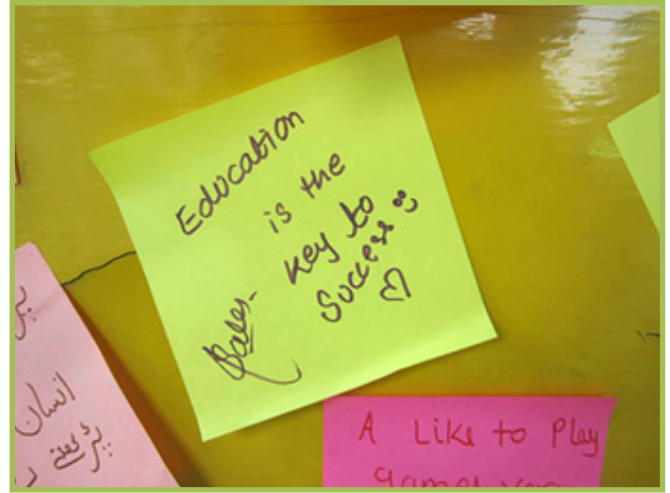 Education
is the
key to
Success
انسان
A Like to Play
games very